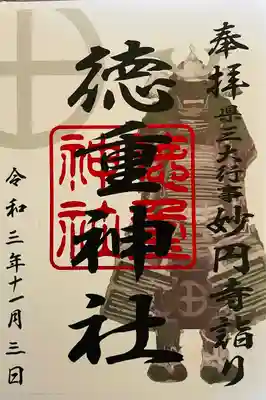 奉拝 県三大行事 妙円寺詣り
徳重神社
神社
令和三年十一月三日